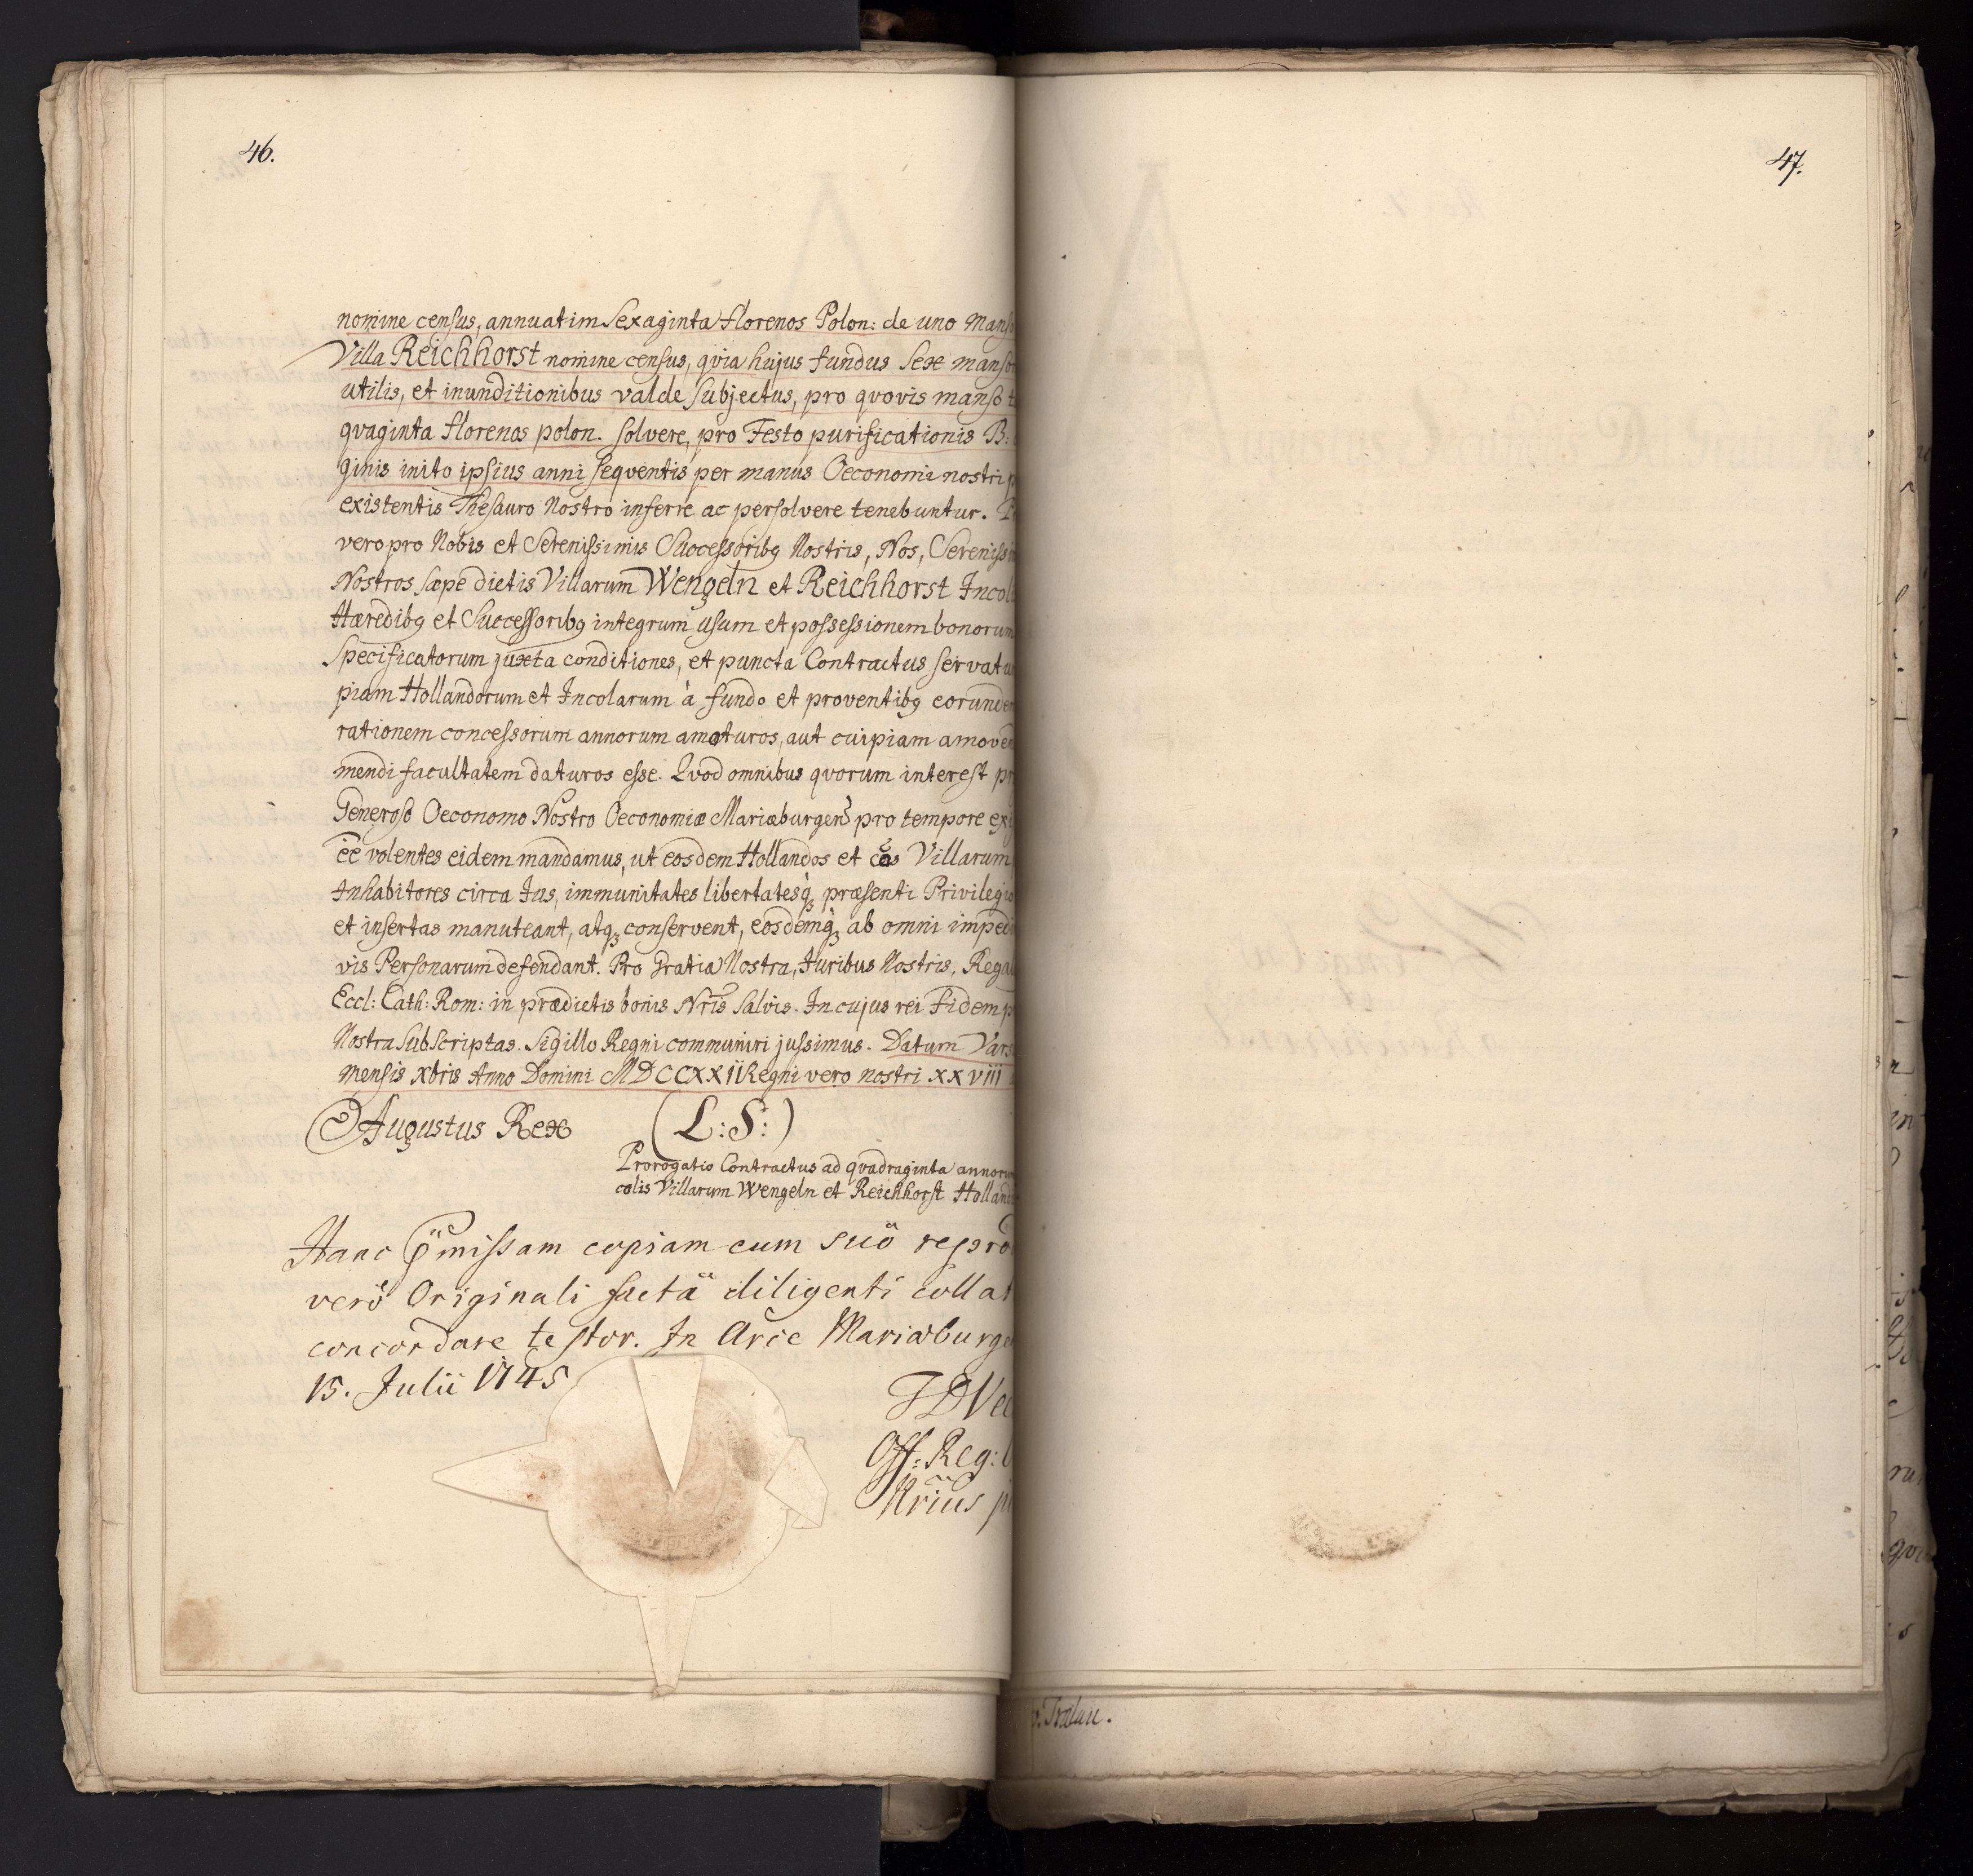 46.
nomine census, annuatim Sexaginta florenos Polon: de uno Manso
Villa Reichhorst nomine census, qvia hujus fundus Sex manso
utilis, et inunditionibus valde Subjectus, pro qvovis manso
qvaginta florenos polon. Solvere, pro Festo purificationis B:
ginis inito ipsius anni seqventis per manus Oeconomi nostri p
existentis Thesauro Nostro inferre ac persolvere tenebuntur.
vero pro Nobis et Serenissimis Successoribq Nostris, Nos, Sereniss
Nostros sæpe dictis Villarum Wengeln et Reichhorst Incol
Hæredibq et Successoribq integrum usum et possessionem bonorum
Specificatorum juxta conditiones, et puncta Contractus servatu
piam Hollandorum et Incolarum à fundo et proventibq eorunde
rationem concessorum annorum amoturos, aut cuipiam amove
mendi facultatem daturos esse. Qvod omnibus qvorum interest pr
Generoso Oeconomo Nostro Oeconomiæ Mariæburgens pro tempore ex
ēē volentes eidem mandamus, ut eosdem Hollandos et eos Villarum
Inhabitores circa Jus, immunitates libertatesq₃ præsenti Privilegio
et insertas manuteant, atq₃ conservent, eosdemq₃ ab omni impedi
vis Personarum defendant. Pro Gratia Nostra, Juribus Nostris, Rega
Eccl: Cath: Rom: in prædictis bonis Nr̃is Salvis. In cujus rei Fidem p
Nostra Subscriptas. Sigillo Regni communiri jussimus. Datum Vars
mensis Xbris Anno Domini MDCCXXII Regni vero nostri XXVIII
Augustus Rex (L:S:)
Prorogatio Contractus ad qvadraginta annoru
colis Villarum Wengeln et Reichhorst Holland
Hanc p̈missam copiam cum suö repro
verö Originali factä diligenti collat
concordare testor. In Arce Mariæburge
15. Julii 1745
JDVe
Off: Reg:
Nr̃ius p
47.